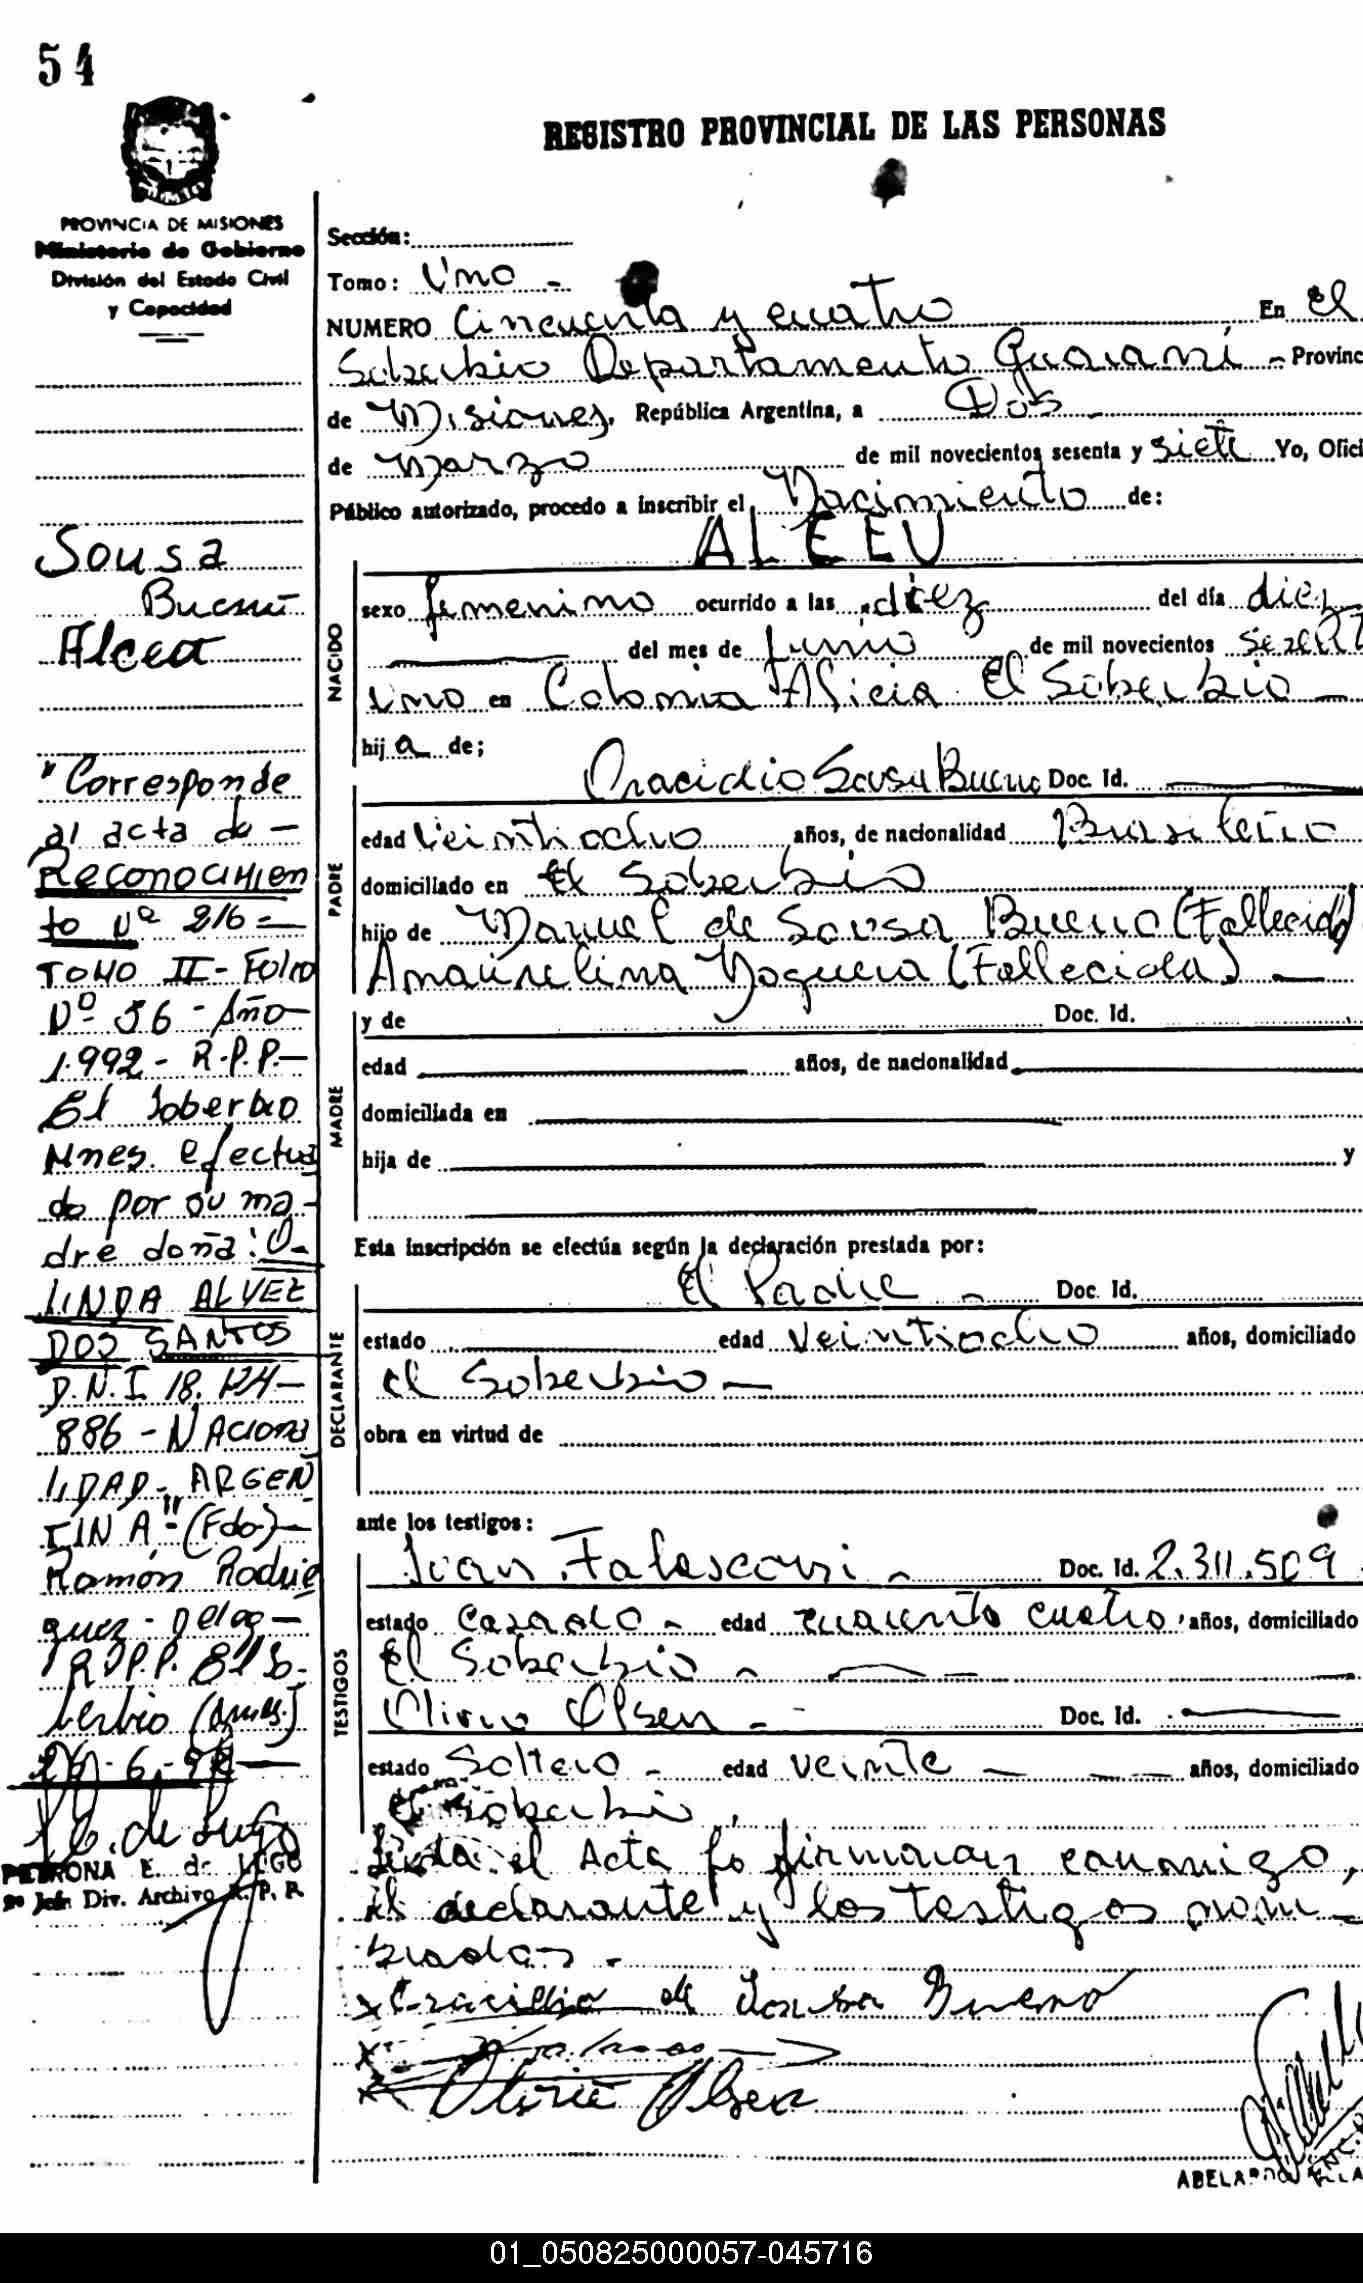 54
REGISTRO PROVINCIAL DE LAS PERSONAS
PROVINCIA DE MISIONES
Ministerio de Gobierno
División del Estado Civil
y Capacidad
Sousa
Bueno
Alceu
"Corresponde
al acta de -
Reconocimien
to Nº 216 =
TOMO II - Folio
Nº 56 - Año
1.992 - R.P.P.-
El Soberbio
Mnes. efectua
do por su ma-
dre doña: O-
LINDA ALVEZ
DOS SANTOS
D.N.I 18.124-
886 - NACIONA
LIDAD - ARGEN
TINA" - (Fdo) -
Ramón Rodri
guez - Deleg -
R.P.P. El So-
berbio (Mnes.)
PETRONA E. de LUGO
Jefe Div. Archivo R. P. P.
Sección:
Tomo: Uno -
NUMERO Cincuenta y cuatro En El
Soberbio Departamento Guaraní - Provinc
de Misiones, República Argentina, a Dos -
de Marzo de mil novecientos sesenta y siete Yo, Ofici
Público autorizado, procedo a inscribir el Nacimiento de:
ALCEU
NACIDO
sexo femenino ocurrido a las diez del día diez
del mes de Junio de mil novecientos sesent
uno en Colonia Alicia El Soberbio -
hija de;
PADRE
Oracidio Sousa Bueno Doc. Id.
edad veintiocho años, de nacionalidad Brasileño
domiciliado en El Soberbio
hijo de Manuel de Sousa Bueno (Fallecido)
Amaurelina Noguera (Fallecida) -
MADRE
y de Doc. Id.
edad años, de nacionalidad
domiciliada en
hija de y
Esta inscripción se efectúa según la declaración prestada por:
DECLARANTE
El Padre - Doc. Id.
estado edad veintiocho años, domiciliado
el Soberbio -
obra en virtud de
ante los testigos:
TESTIGOS
Juan Falesconi - Doc. Id. 2.311.509
estado casado - edad cuarenta cuatro años, domiciliado
El Soberbio -
Olivio Olsen - Doc. Id.
estado Soltero - edad veinte - años, domiciliado
El Soberbio
Leida el Acta lo firmaran conmigo,
el declarante y los testigos nom-
brados -
x Oracidio de Sousa Bueno
x
x Olivio Olsen
ABELARDO
01_050825000057-045716